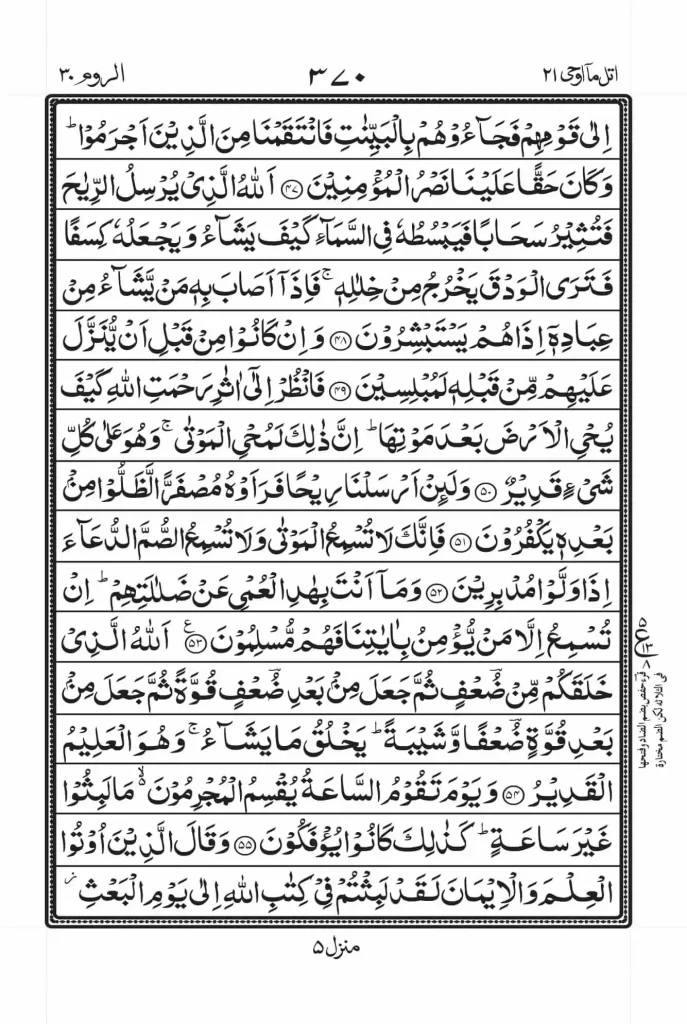 اتل مآ اوحی ۲۱
۳۷۰
الروم ۳۰
اِلٰى قَوۡمِهِمۡ فَجَآءُوۡهُمۡ بِالۡبَيِّنٰتِ فَانْتَقَمۡنَا مِنَ الَّذِيۡنَ اَجۡرَمُوۡا ؕ
وَكَانَ حَقًّا عَلَيۡنَا نَصۡرُ الۡمُؤۡمِنِيۡنَ ﴿۴۷﴾ اَللّٰهُ الَّذِىۡ يُرۡسِلُ الرِّيٰحَ
فَتُثِيۡرُ سَحَابًا فَيَبۡسُطُهٗ فِى السَّمَآءِ كَيۡفَ يَشَآءُ وَيَجۡعَلُهٗ كِسَفًا
فَتَرَى الۡوَدۡقَ يَخۡرُجُ مِنۡ خِلٰلِهٖ ۚ فَاِذَاۤ اَصَابَ بِهٖ مَنۡ يَّشَآءُ مِنۡ
عِبَادِهٖۤ اِذَا هُمۡ يَسۡتَبۡشِرُوۡنَ ﴿۴۸﴾ وَاِنۡ كَانُوۡا مِنۡ قَبۡلِ اَنۡ يُّنَزَّلَ
عَلَيۡهِمۡ مِّنۡ قَبۡلِهٖ لَمُبۡلِسِيۡنَ ﴿۴۹﴾ فَانْظُرۡ اِلٰٓى اٰثٰرِ رَحۡمَتِ اللّٰهِ كَيۡفَ
يُحۡىِ الۡاَرۡضَ بَعۡدَ مَوۡتِهَا ؕ اِنَّ ذٰلِكَ لَمُحۡىِ الۡمَوۡتٰى ۚ وَهُوَ عَلٰى كُلِّ
شَىۡءٍ قَدِيۡرٌ ﴿۵۰﴾ وَلَئِنۡ اَرۡسَلۡنَا رِيۡحًا فَرَاَوۡهُ مُصۡفَرًّا لَّظَلُّوۡا مِنْۢ
بَعۡدِهٖ يَكۡفُرُوۡنَ ﴿۵۱﴾ فَاِنَّكَ لَا تُسۡمِعُ الۡمَوۡتٰى وَلَا تُسۡمِعُ الصُّمَّ الدُّعَآءَ
اِذَا وَلَّوۡا مُدۡبِرِيۡنَ ﴿۵۲﴾ وَمَاۤ اَنۡتَ بِهٰدِ الۡعُمۡىِ عَنۡ ضَلٰلَتِهِمۡ ؕ اِنۡ
تُسۡمِعُ اِلَّا مَنۡ يُّؤۡمِنُ بِاٰيٰتِنَا فَهُمۡ مُّسۡلِمُوۡنَ ﴿۵۳﴾ ع اَللّٰهُ الَّذِىۡ
خَلَقَكُمۡ مِّنۡ ضُؔعۡفٍ ثُمَّ جَعَلَ مِنْۢ بَعۡدِ ضُؔعۡفٍ قُوَّةً ثُمَّ جَعَلَ مِنْۢ
بَعۡدِ قُوَّةٍ ضُؔعۡفًا وَّشَيۡبَةً ؕ يَخۡلُقُ مَا يَشَآءُ ۚ وَهُوَ الۡعَلِيۡمُ
الۡقَدِيۡرُ ﴿۵۴﴾ وَيَوۡمَ تَقُوۡمُ السَّاعَةُ يُقۡسِمُ الۡمُجۡرِمُوۡنَ ۙ مَا لَبِثُوۡا
غَيۡرَ سَاعَةٍ ؕ كَذٰلِكَ كَانُوۡا يُؤۡفَكُوۡنَ ﴿۵۵﴾ وَقَالَ الَّذِيۡنَ اُوۡتُوا
الۡعِلۡمَ وَالۡاِيۡمَانَ لَقَدۡ لَبِثۡتُمۡ فِىۡ كِتٰبِ اللّٰهِ اِلٰى يَوۡمِ الۡبَعۡثِ ز
قرء حفص بضم الضاد وفتحها
فی الثلاثة لكن الضم مختارة
منزل ۵